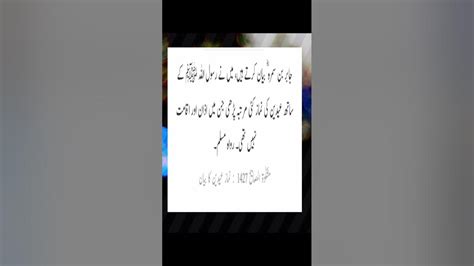 جابر بن سمرہ ؓ بیان کرتے ہیں، میں نے رسول اللہ ﷺ کے
ساتھ عیدین کی نماز کئی مرتبہ پڑھی جس میں اذان اور اقامت
نہیں تھی۔ رواہ مسلم۔
مشکوٰۃ المصابیح 1427 : نماز عیدین کا بیان